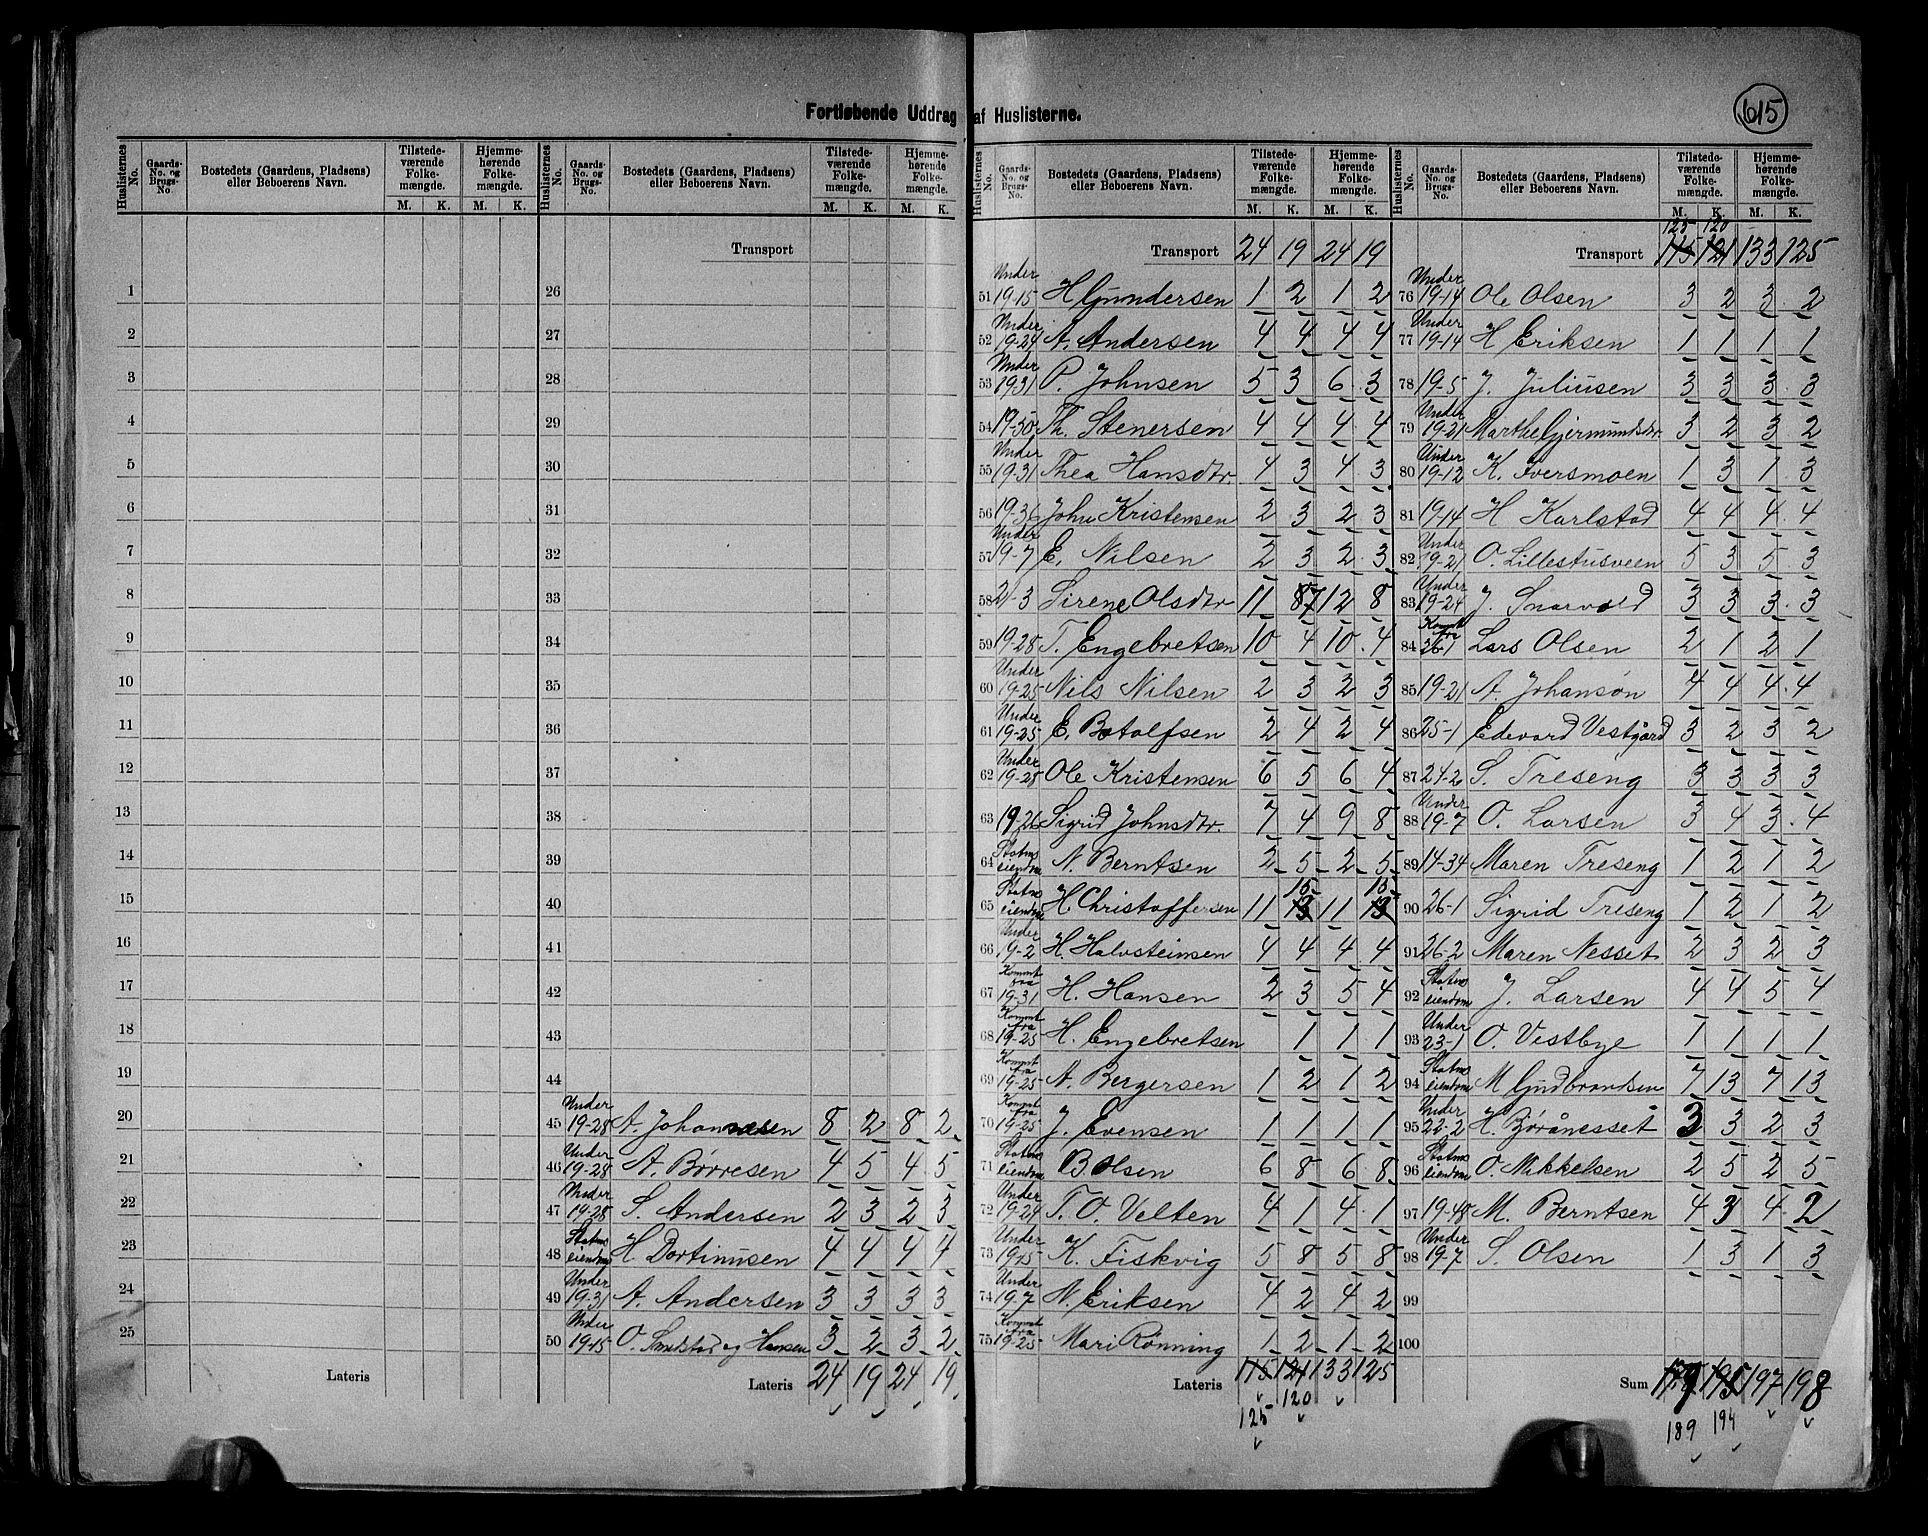 615
Fortløbende Uddrag af Huslisterne.
Huslisternes No. Gaards-No. og Brugs-No. Bostedets (Gaardens, Pladsens) eller Beboerens Navn. Tilstedeværende Folkemængde. Hjemmehørende Folkemængde.
M. K. M. K.
1
2
3
4
5
6
7
8
9
10
11
12
13
14
15
16
17
18
19
20
21
22
23
24
25
Lateris
Huslisternes No. Gaards-No. og Brugs-No. Bostedets (Gaardens, Pladsens) eller Beboerens Navn. Tilstedeværende Folkemængde. Hjemmehørende Folkemængde.
M. K. M. K.
Transport
26
27
28
29
30
31
32
33
34
35
36
37
38
39
40
41
42
43
44
45 Under 19-28 A. Johannesen 8 2 8 2
46 Under 19-28 A. Børresen 4 5 4 5
47 Under 19-28 S. Andersen 2 3 2 3
48 Statns eiendom H. Dortinusen 4 4 4 4
49 Under 19-31 A. Andersen 3 3 3 3
50 Under 19-15 O. Smelstad og Hansen 3 2 3 2
Lateris 24 19 24 19
Huslisternes No. Gaards-No. og Brugs-No. Bostedets (Gaardens, Pladsens) eller Beboerens Navn. Tilstedeværende Folkemængde. Hjemmehørende Folkemængde.
M. K. M. K.
Transport 24 19 24 19
51 Under 19-15 H Gundersen 1 2 1 2
52 Under 19-24 A. Andersen 4 4 4 4
53 Under 19-31 P. Johnsen 5 3 6 3
54 19-30 Th. Stenersen 4 4 4 4
55 Under 19-31 Thea Hansdtr. 4 3 4 3
56 19-36 John Kristensen 2 3 2 3
57 Under 19-7 E. Nilsen 2 3 2 3
58 21-3 Sirene Olsdtr 11 7 12 8
59 19-28 T. Engebretsen 10 4 10 4
60 Under 19-25 Nils Nilsen 2 3 2 3
61 Under 19-25 E. Botolfsen 2 4 2 4
62 Under 19-28 Ole Kristensen 6 5 6 4
63 19-26 Sigrid Johnsdtr. 7 4 9 8
64 Statns eiendom N. Berntsen 2 5 2 5
65 Statns eiendom H. Christoffersen 11 15 11 15
66 Under 19-2 H. Halvsteinsen 4 4 4 4
67 Kommt fra 19-31 H. Hansen 2 3 5 4
68 Kommt fra 19-25 H. Engebretsen 1 1 1
69 Kommt fra 19-25 A. Bergersen 1 2 1 2
70 Kommt fra 19-25 J. Evensen 1 1 1 1
71 Statns eiendom B Olsen 6 8 6 8
72 Under 19-24 T. O. Velten 4 1 4 1
73 Under 19-15 K. Fiskvig 5 8 5 8
74 Under 19-7 N. Eriksen 4 2 4 2
75 Kommt fra 19-25 Mari Rønning 1 2 1 2
Lateris 115 121 133 125
125 120
Huslisternes No. Gaards-No. og Brugs-No. Bostedets (Gaardens, Pladsens) eller Beboerens Navn. Tilstedeværende Folkemængde. Hjemmehørende Folkemængde.
M. K. M. K.
125 120
Transport 115 121 133 125
76 Under 19-14 Ole Olsen 3 2 3 2
77 Under 19-14 H Eriksen 1 1 1 1
78 19-5 J. Juliusen 3 3 3 3
79 Under 19-21 Marthe Gjermundsdtr. 3 2 3 2
80 Under 19-12 K. Iversmoen 1 3 1 3
81 19-14 H Karlstad 4 4 4 4
82 Under 19-21 O. Lillestusveen 5 3 5 3
83 Under 19-24 J. Snarvold 3 3 3 3
84 Kommt fra 26-1 Lars Olsen 2 1 2 1
85 19-21 A. Johansøn 4 4 4 4
86 25-1 Edevard Vestgård 3 2 3 2
87 24-2 S. Treseng 3 3 3 3
88 Under 19-7 O. Larsen 3 4 3 4
89 14-34 Maren Treseng 1 2 1 2
90 26-1 Sigrid Treseng 1 2 1 2
91 26-2 Maren Nesset 2 3 2 3
92 Statns eiendom J. Larsen 4 4 5 4
93 Under 23-1 O. Vestbye 1 1 1 1
94 Statns eiendom M Gudbrandsen 7 13 7 13
95 Under 22-2 H. Børånesset 3 3 2 3
96 Statns eiendom O. Mikkelsen 2 5 2 5
97 19-48 M. Berntsen 4 3 4 2
98 Under 19-7 S. Olsen 1 3 1 3
99
100
Sum 179 195 197 198
189 194